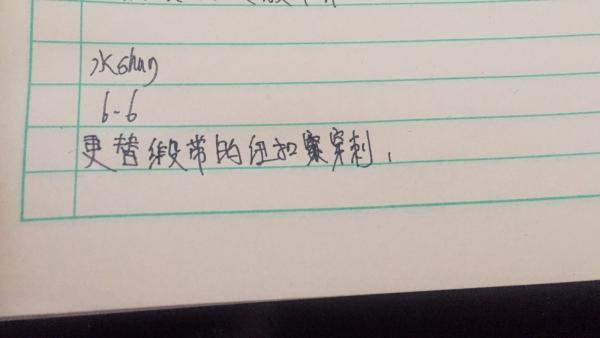 水shang
6-6
更替缎带的纽扣案穿刺,